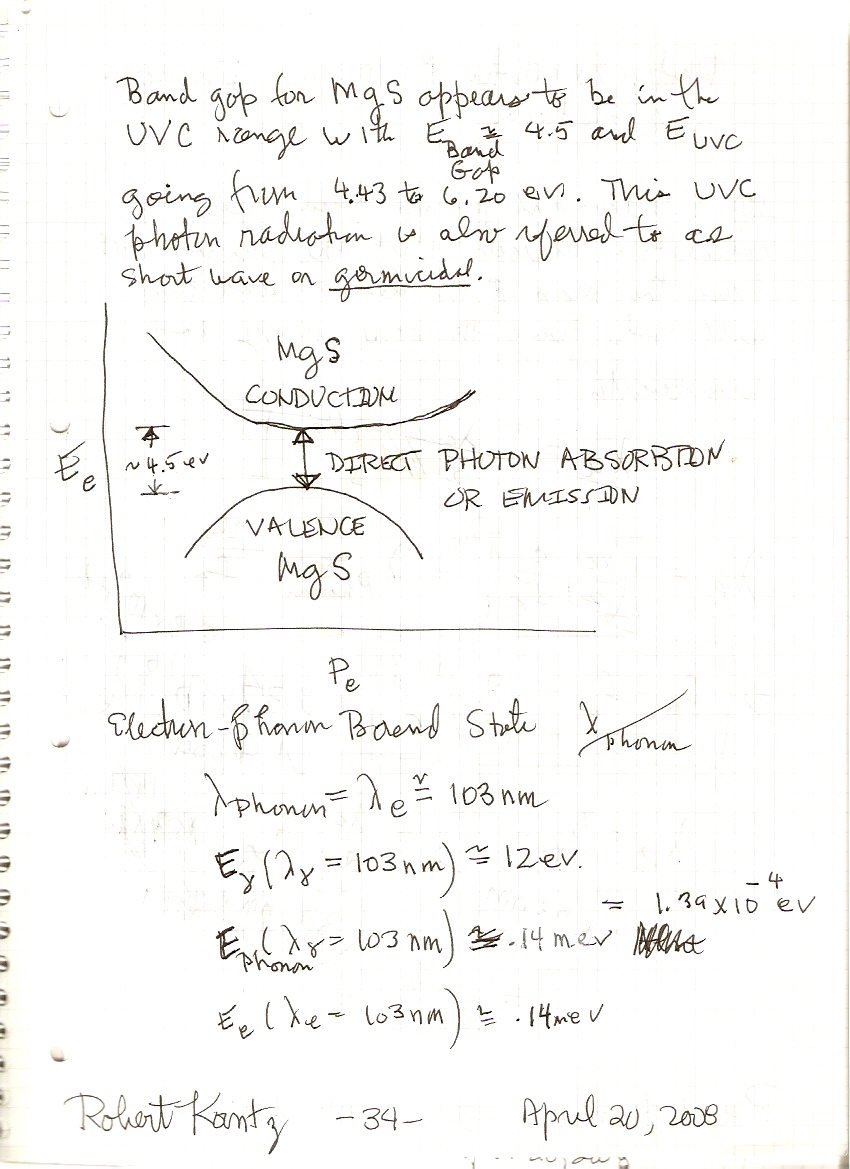 Band gap for MgS appears to be in the
UVC range with E Band Gap ≅ 4.5 and E UVC
going from 4.43 to 6.20 ev. This UVC
photon radiation is also referred to as
short wave or germicidal.
MgS
CONDUCTION
~4.5 ev
E e
DIRECT PHOTON ABSORBTION
OR EMISSION
VALENCE
MgS
P e
Electron-phonon Bound State λ phonon
λ phonon = λ e ≅ 103 nm
E γ (λ γ = 103 nm) ≅ 12 ev.
= 1.39 x 10 -4 ev
E phonon (λ γ = 103 nm) ≅ .14 mev
E e (λ e = 103 nm) ≅ .14 mev
Robert Kantz -34- April 20, 2008